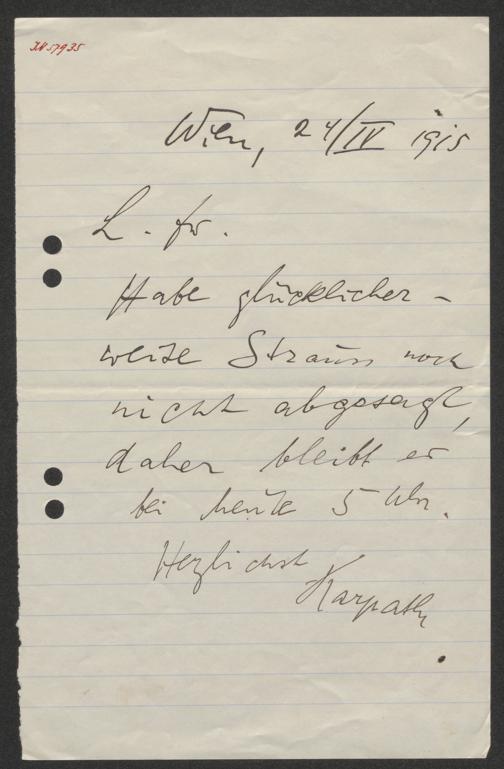 IN 57935
Wien, 24/IV 1915
L. fr.
Habe glücklicher-
weise Strauss noch
nicht abgesagt,
daher bleibt es
bei heute 5 Uhr.
Herzlichst
Karpath